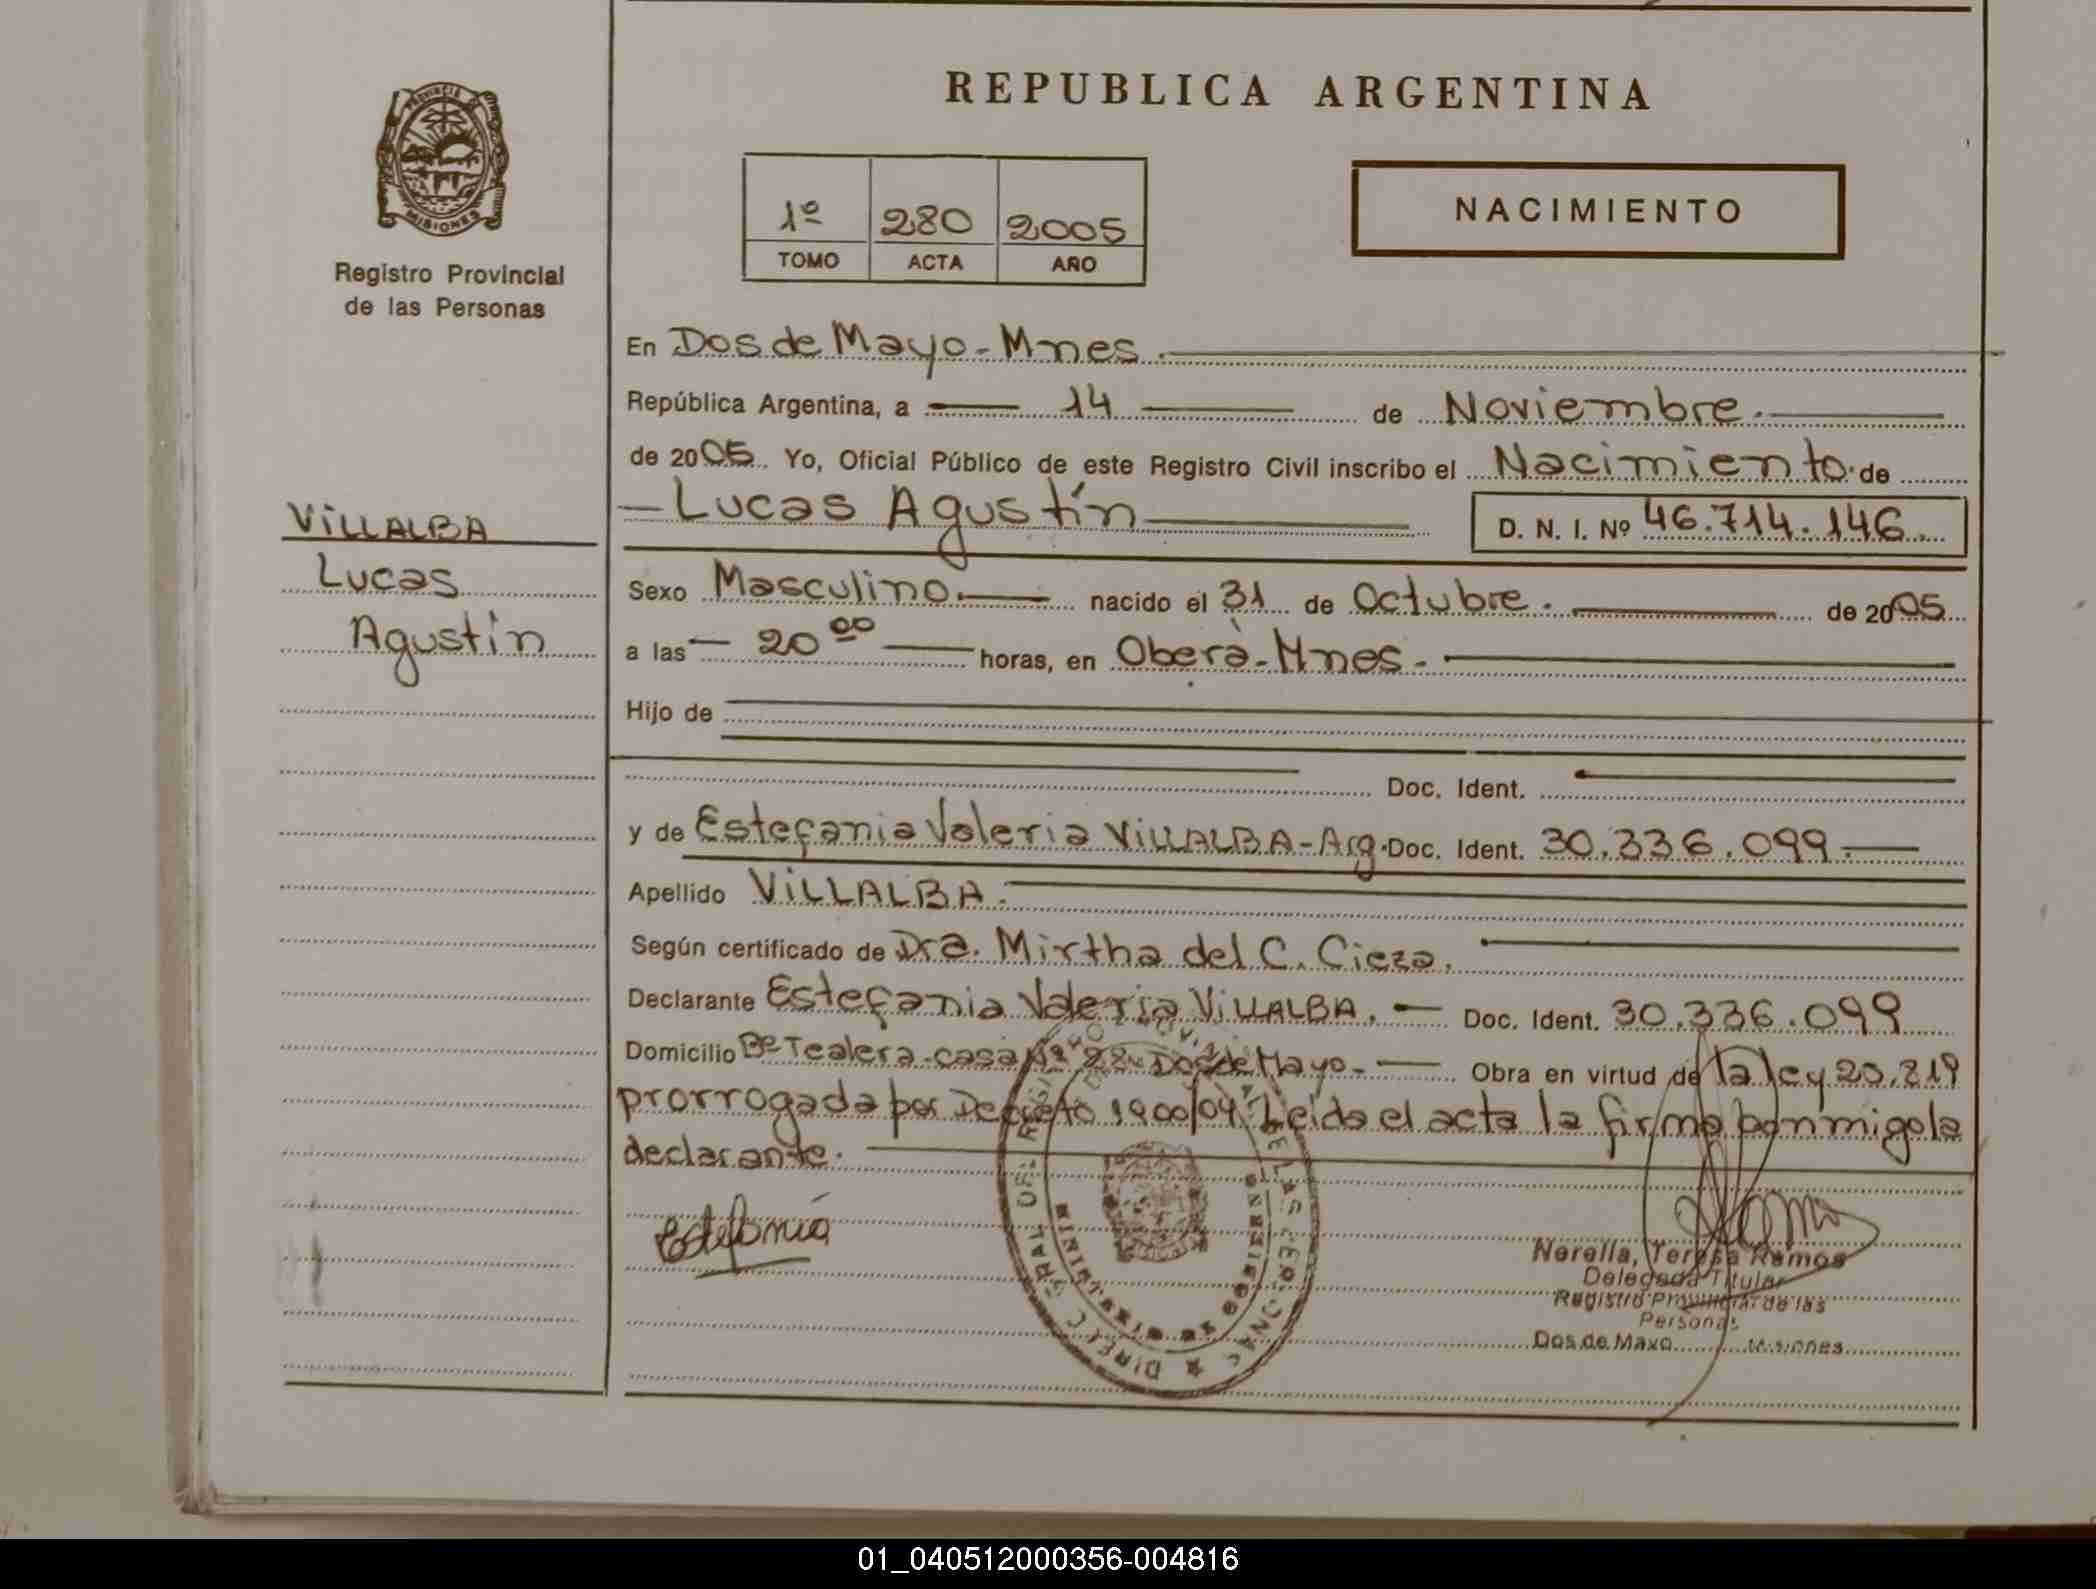 REPUBLICA ARGENTINA
PROVINCIA DE
MISIONES
Registro Provincial
de las Personas
1º 280 2005
TOMO ACTA AÑO
NACIMIENTO
En Dos de Mayo - Mnes.
República Argentina, a 14 de Noviembre.
de 2005 Yo, Oficial Público de este Registro Civil inscribo el Nacimiento de
Lucas Agustín D. N. I. Nº 46.714.146
VILLALBA
Lucas
Agustín
Sexo Masculino. nacido el 31 de Octubre. de 2005
a las 20 00 horas, en Oberà - Mnes.
Hijo de
Doc. Ident.
y de Estefania Valeria VILLALBA - Arg. Doc. Ident. 30.336.099.
Apellido VILLALBA.
Según certificado de Dra. Mirtha del C. Cieza.
Declarante Estefania Valeria VILLALBA. Doc. Ident. 30.336.099
Domicilio Bº Tealera - casa Nº 28 - Dos de Mayo. Obra en virtud de la ley 20.819
prorrogada por Decreto 1900/04. Leida el acta la firma conmigo la
declarante.
Estefania
Norella, Teresa Ramos
Delegada Titular
Registro Provincial de las
Personas
Dos de Mayo Misiones
01_040512000356-004816